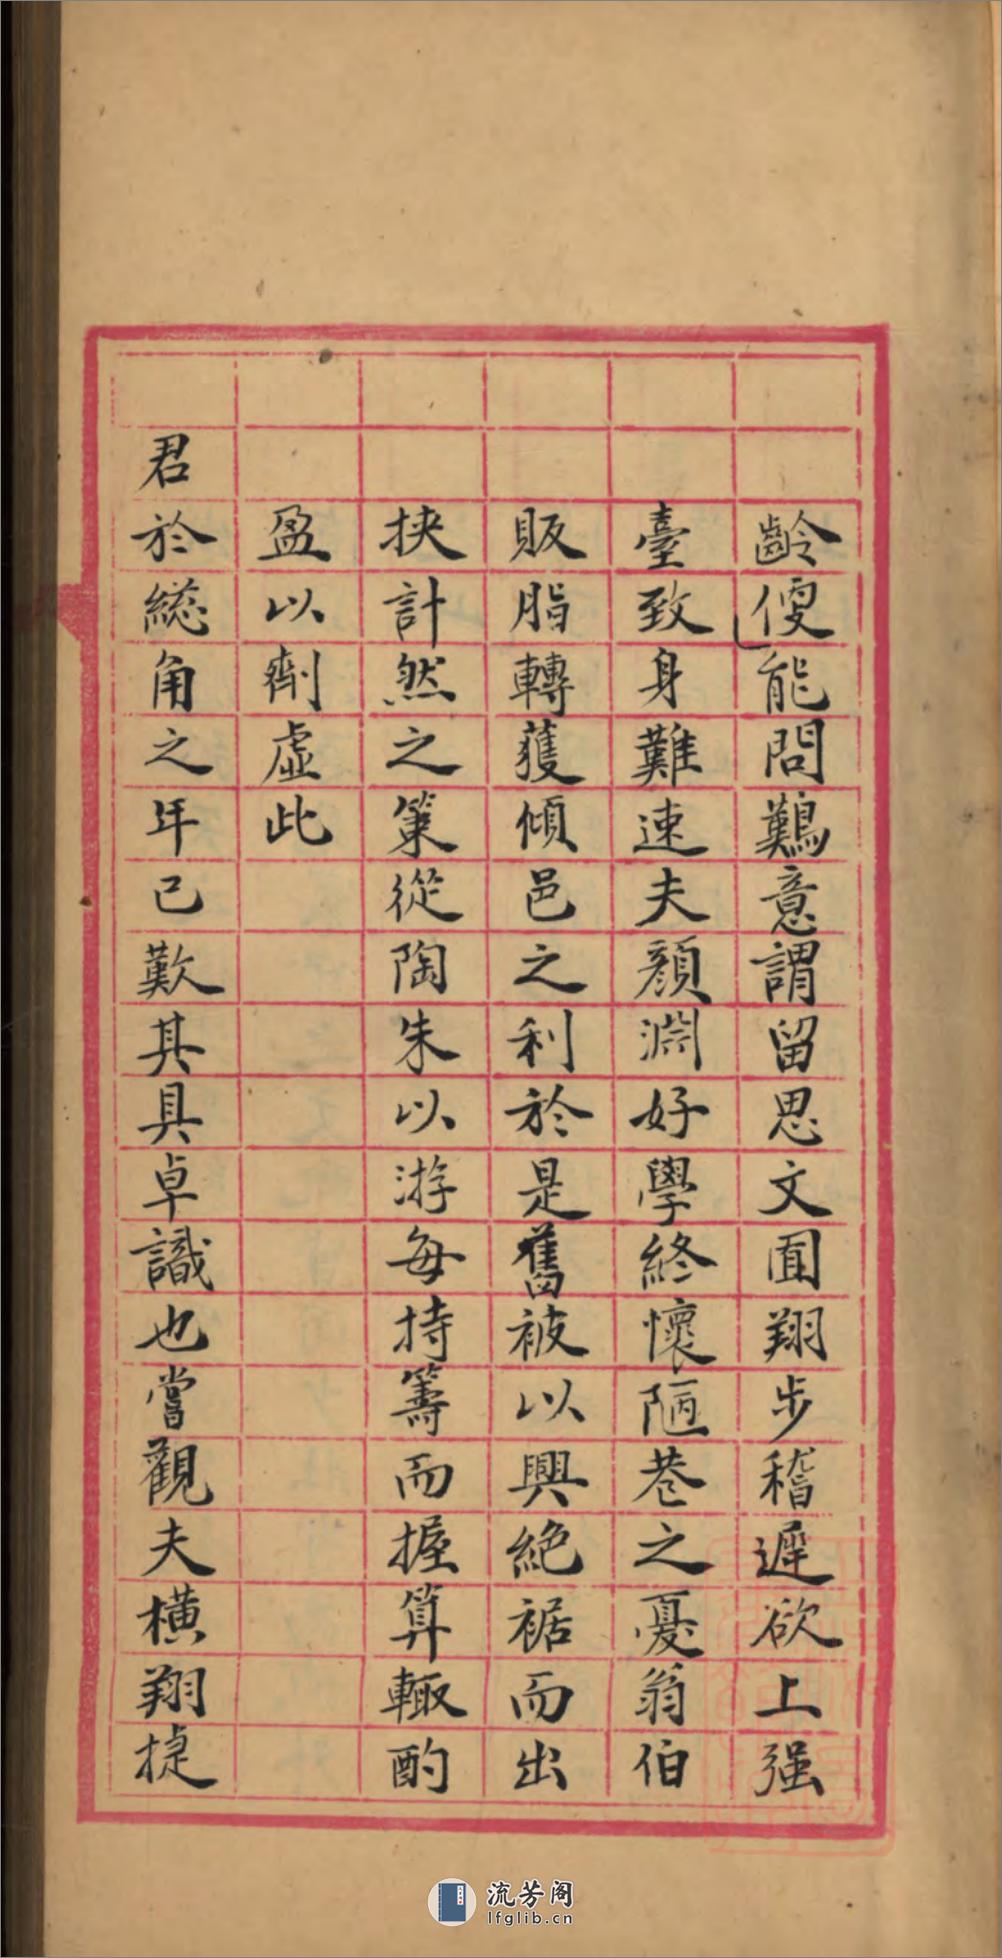 齡便能問鷄意謂留思文囿翔步稽遲欲上强
臺致身難速夫顔淵好學終懷陋巷之憂翁伯
販脂轉獲傾邑之利於是舊被以興絶裾而出
挾計然之策從陶朱以游每持籌而握算輙酌
盈以劑虛此
君於總角之年已歎其具卓識也嘗觀夫橫翔捷
流芳阁
lfglib.cn